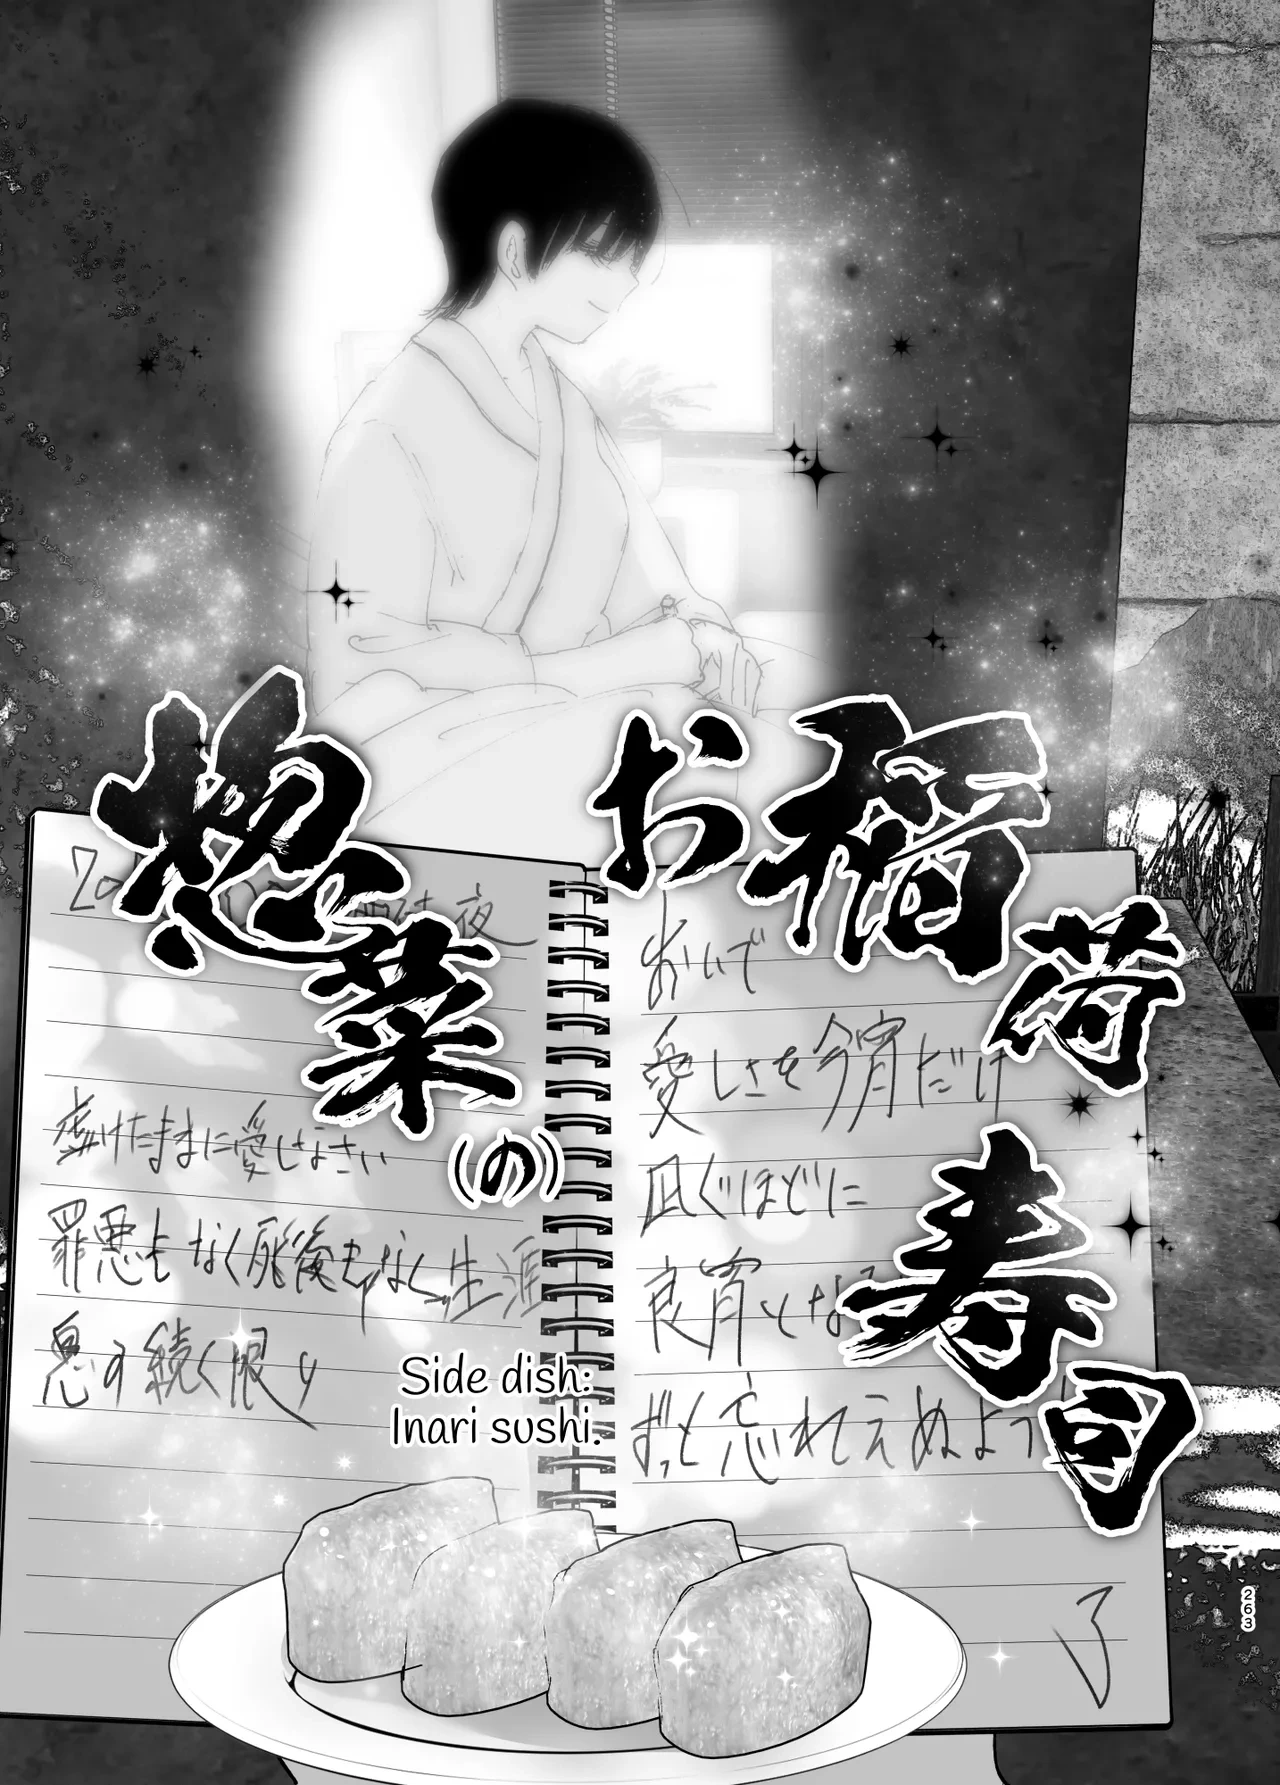 惣菜(の)
お稲荷寿司
夜
虚けたままに愛しなさい
罪悪もなく死後もなく生涯
息す続く限り
おいで
愛しさを今宵だけ
凪ぐほどに
良宵とな
ずっと忘れえぬよう
了
Side dish:
Inari sushi.
263